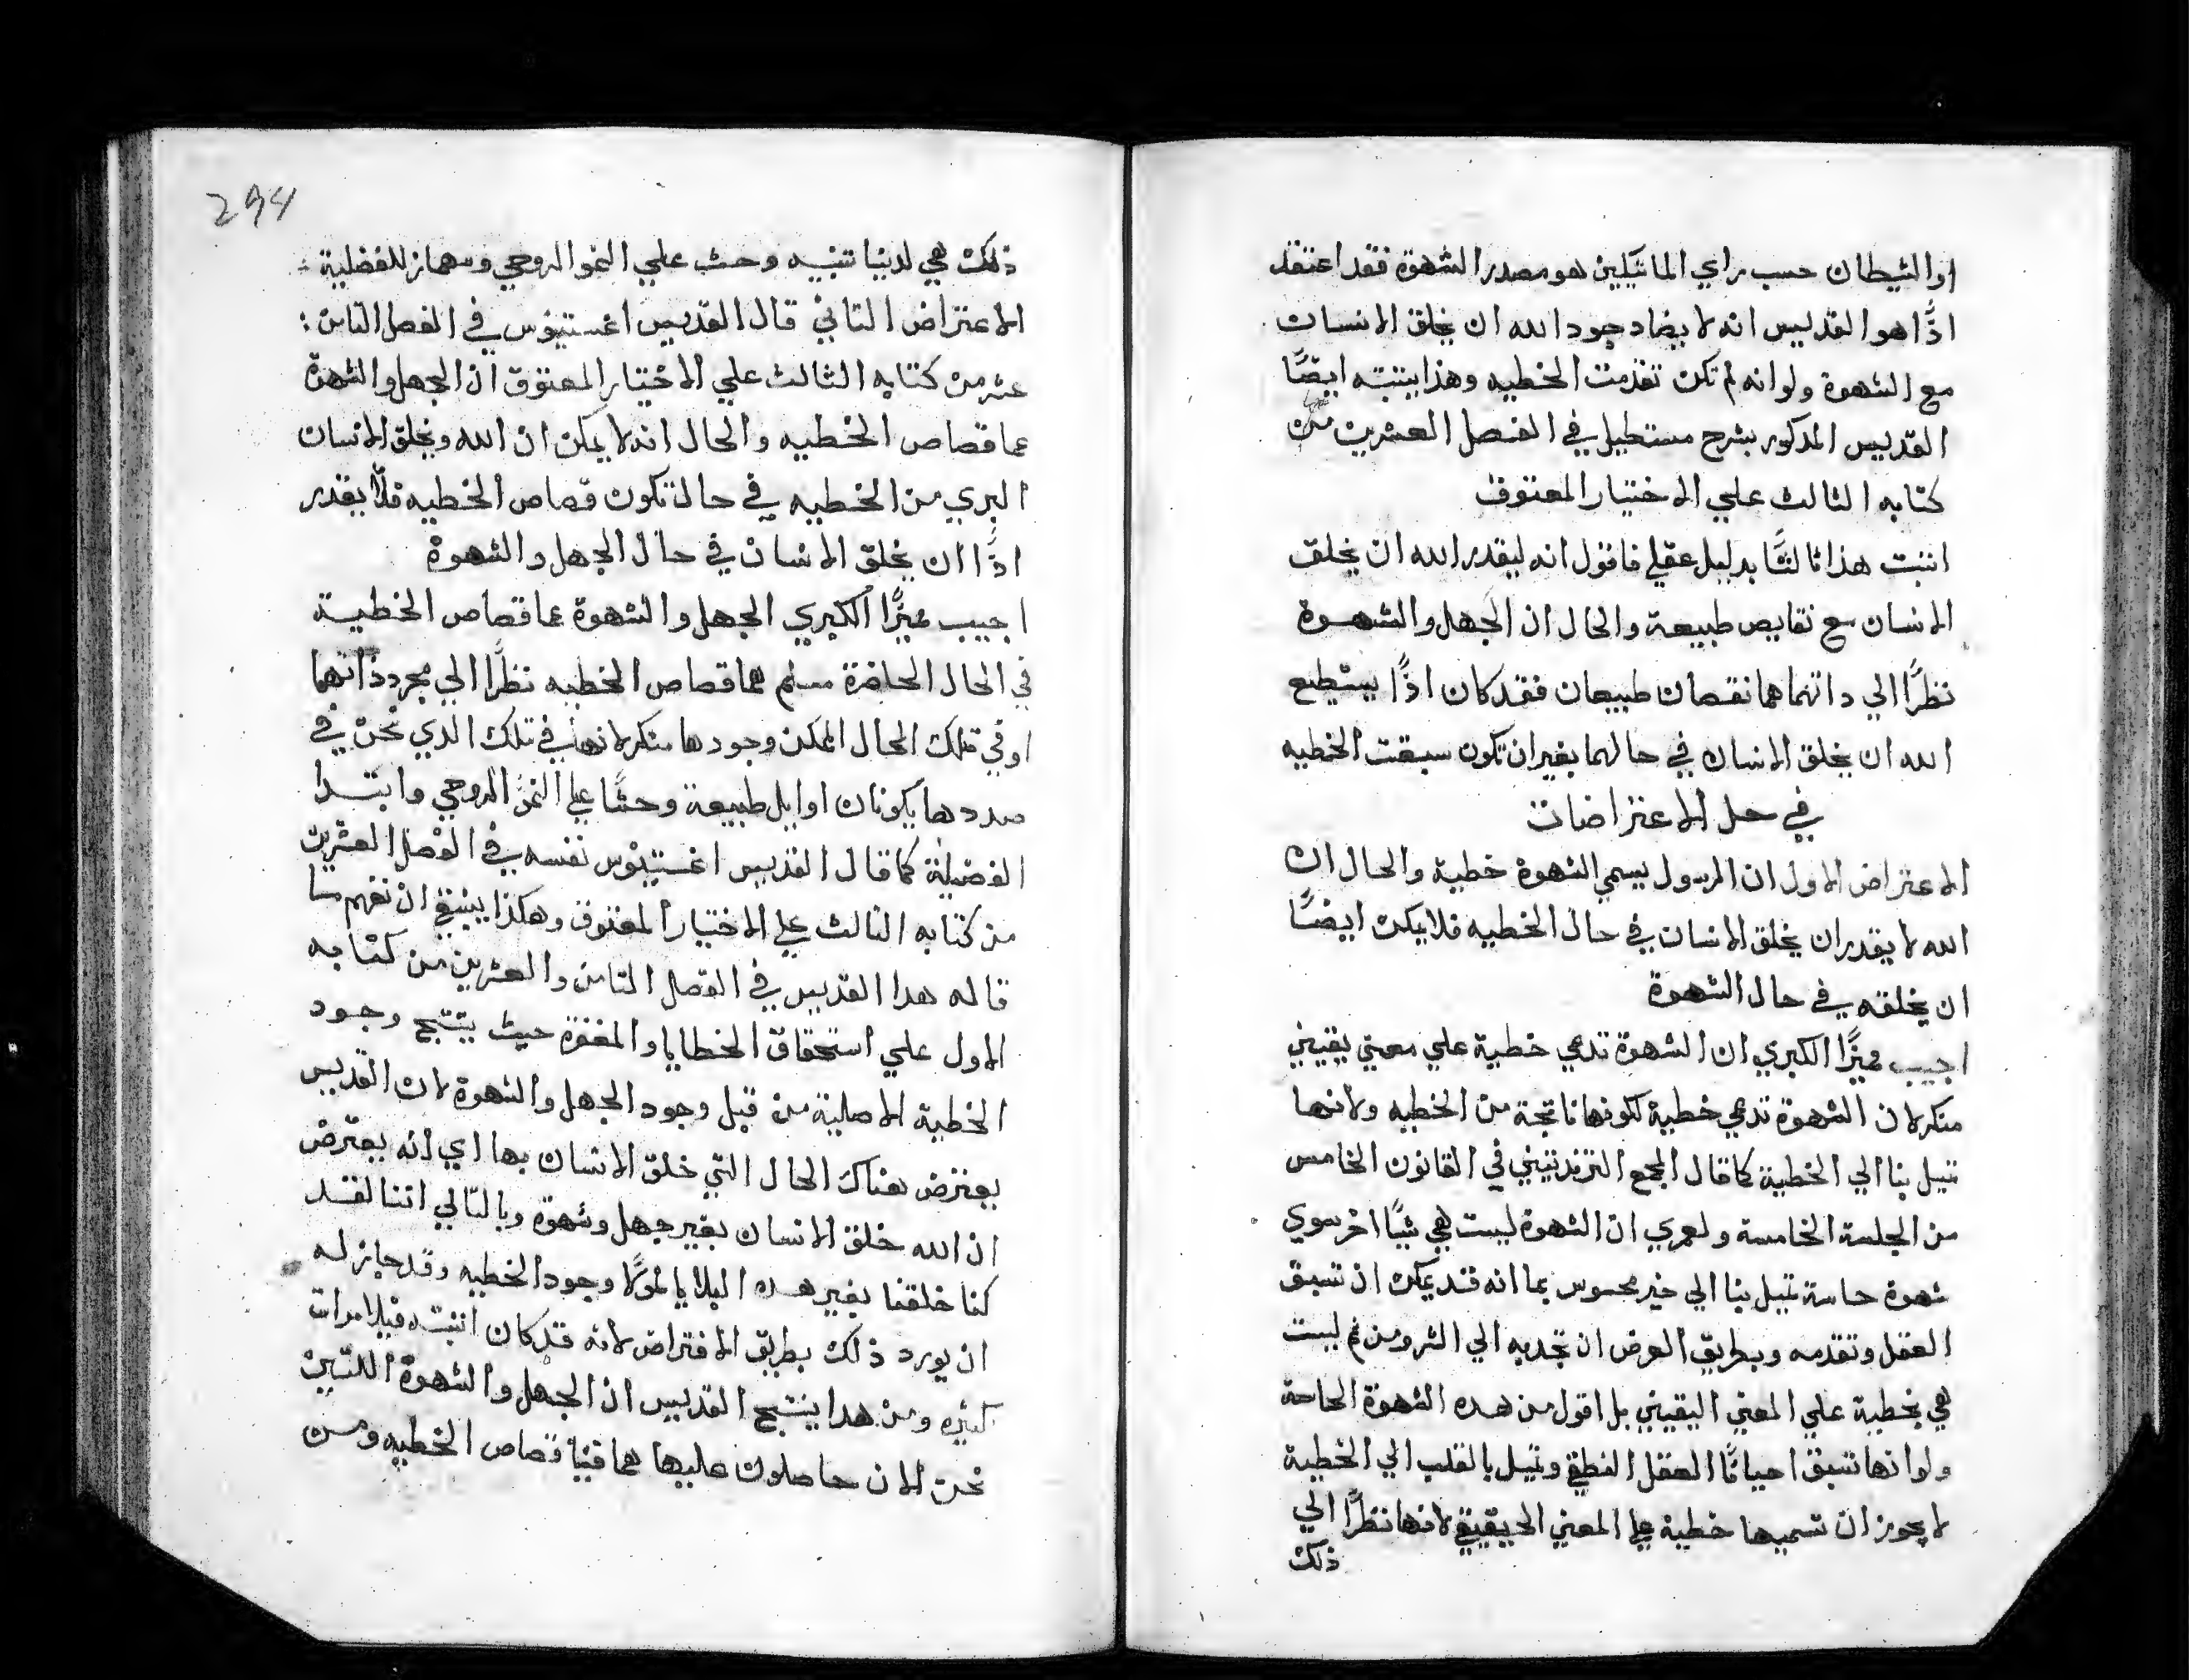 او الشيطان حسب راي الماتيكيين هو مصدر الشهوة فقد اعتقد
اذًا هو القديس انه لا يضاد جود الله ان يخلق الانسان
مع الشهوة ولو انه لم تكن تقدمت الخطيه وهذا يبته ايضًا
القديس المدكور بشرح مستطيل في الفصل العشرين من
كتابه الثالث علي الاختيار المعتوق
اثبت هذا ثالثًا بدليل عقلي فاقول انه ليقدر الله ان يخلق
الانسان مع نقايص طبيعة والحال ان الجهل والشهوة
نظرًا الي داتهما هما نقصان طبيعان فقد كان اذًا يستطيع
الله ان يخلق الانسان في حالهما بغير ان تكون سبقت الخطيه
في حل الاعتراضات
الاعتراض الاول ان الرسول يسمي الشهوة خطية والحال ان
الله لا يقدر ان يخلق الانسان في حال الخطيه فلا يمكن ايضًا
ان يخلقه في حال الشهوة
اجيب مميزًا الكبري ان الشهوة تدعي خطية علي معني يقيني
منكر لان الشهوة تدعي خطية لكونها ناتجة من الخطيه ولانها
تميل بنا الي الخطية كما قال المجمع التريدنتيني في القانون الخامس
من الجلسة الخامسة ولعمري ان الشهوة ليست هي شيًا اخر سوي
شهوة حاسة تميل بنا الي خير محسوس بما انه قد يمكن ان تسبق
العقل وتقدمه وبطريق العرض ان تجدبه الي الشر ومن ثم ليست
هي بخطية علي المعني اليقيني بل اقول من هده الشهوة الجامحة
ولو انها تسبق احيانًا العقل النطقي وتميل بالقلب الي الخطية
لا يجوز ان نسميها خطية علي المعني الحقيقي لانها نظرًا الي
ذلك
294
ذلك هي لدينا تنبيه وحث علي النمو الروحي ومهماز للفضلية
الاعتراض الثاني قال القديس اغستينوس في الفصل الثامن
عشر من كتابه الثالث علي الاختيار المعتوق ان الجهل والشهوة
هما قصاص الخطيه والحال انه لا يمكن ان الله ويخلق الانسان
البري من الخطيه في حالة تكون قصاص الخطيه فلا يقدر
اذًا ان يخلق الانسان في حال الجهل والشهوة
اجيب مميزًا الكبري الجهل والشهوة هما قصاص الخطية
في الحال الحاضرة مسلم هما قصاص الخطيه نظرًا الي مجرد ذاتهما
او في تلك الحال الممكن وجودها منكر لانهما في تلك الذي نحن في
صددها يكونان اوايل طبيعة وحثًا علي النمو الروحي وابتدا
الفضيلة كما قال القديس اغستينوس نفسه في الفصل العشرين
من كتابه الثالث علي الاختيار المعتوق وهكذا ينبغي ان نفهم ما
قاله هدا القديس في الفصل الثامن والعشرين من كتابه
الاول علي استحقاق الخطايا والمغفرة حيث ينتج وجود
الخطية الاصلية من قبل وجود الجهل والشهوة لان القديس
يعترض هناك الحال التي خلق الانسان بها اي انه يعترض
ان الله خلق الانسان بغير جهل وشهوة وبالتالي اننا لقد
كنا خلقنا بغير هده البلايا لولا وجود الخطيه وقد جاز له
ان يورد ذلك بطريق الافتراض لانه قد كان اثبته قبلا مرات
كثيره ومن هدا ينتج القديس ان الجهل والشهوة اللتين
نحن الان حاصلون عليها هما فينا قصاص الخطيه ومن